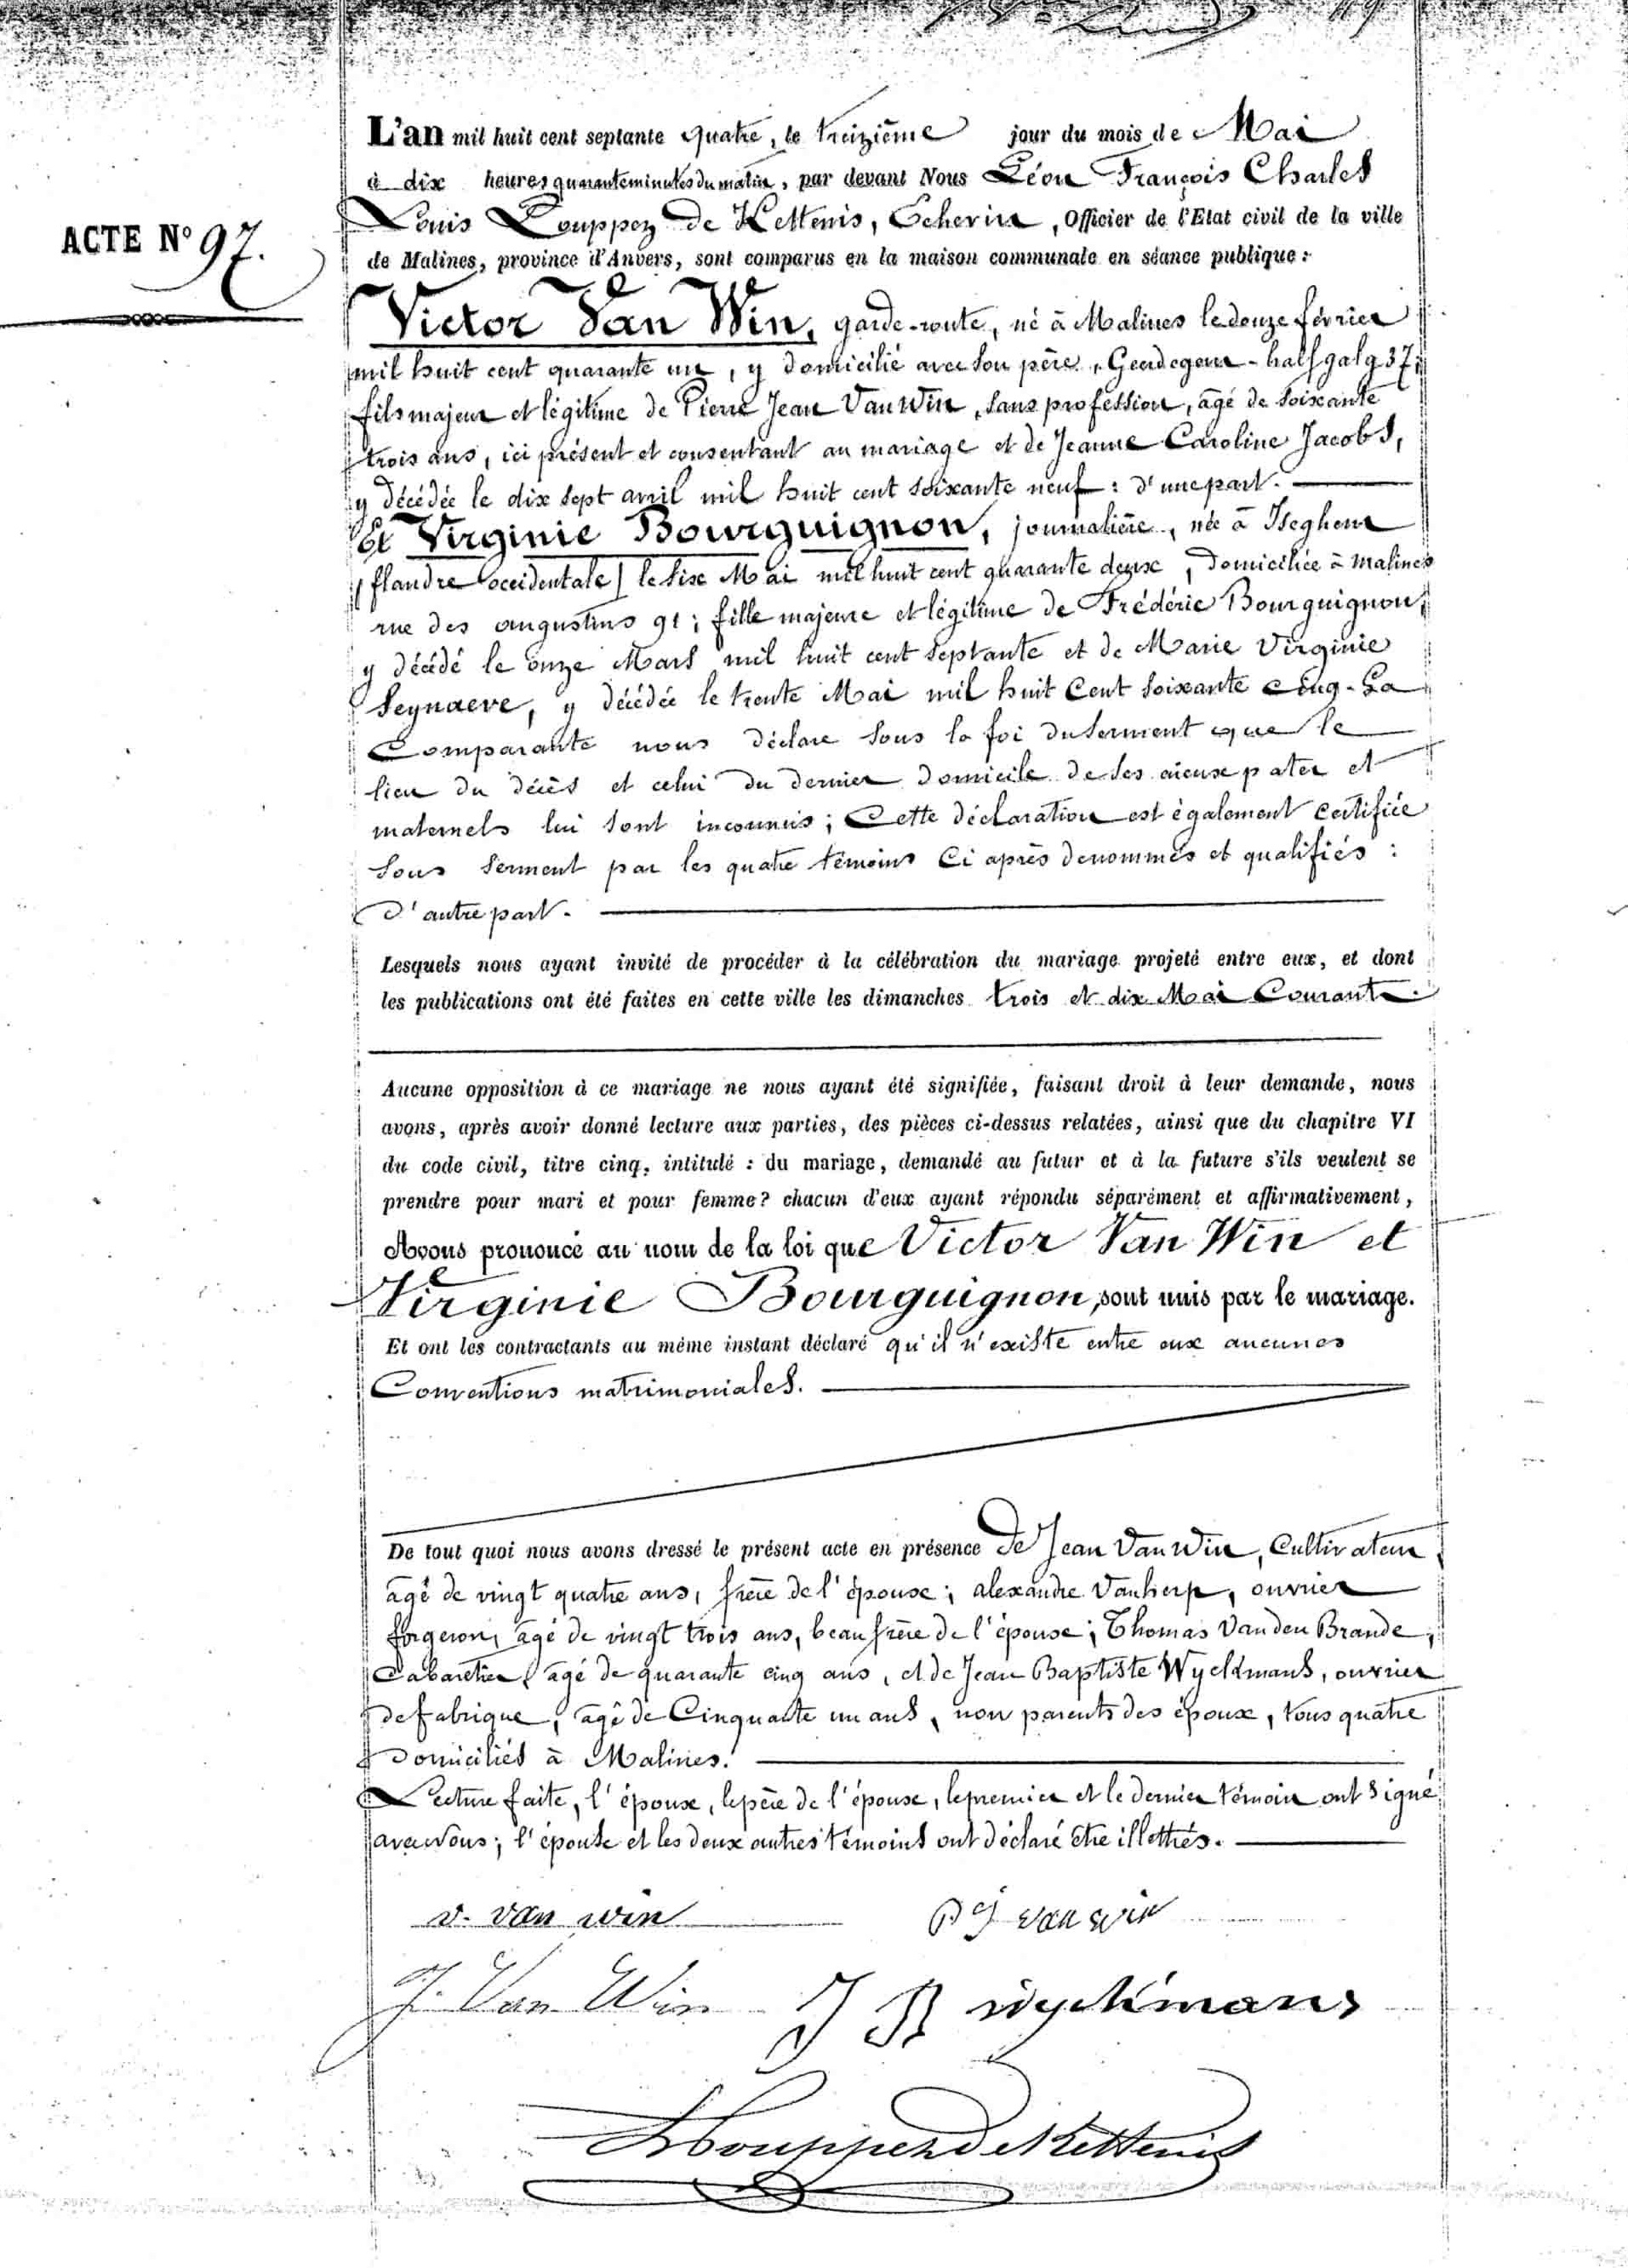 L'an mil huit cent septante quatre, le treizième jour du mois de Mai
à dix heures quarante minutes du matin, par devant Nous Léon François Charles
ACTE N° 97.
Louis Pouppez de Kettenis, Echevin, Officier de l'Etat civil de la ville
de Malines, province d'Anvers, sont comparus en la maison communale en séance publique :
Victor Van Win, garde-route, né à Malines le douze février
mil huit cent quarante un, y domicilié avec son père, Geerdegem-halfgalg 37;
fils majeur et légitime de Pierre Jean Van Win, sans profession, âgé de soixante
trois ans, ici présent et consentant au mariage et de Jeanne Caroline Jacobs,
y décédée le dix sept avril mil huit cent soixante neuf : d'une part.
Et Virginie Bourguignon, journalière, née à Iseghem
(flandre occidentale) le six Mai mil huit cent quarante deux, domiciliée à Malines
rue des augustins 91; fille majeure et légitime de Frédéric Bourguignon,
y décédé le onze Mars mil huit cent septante et de Marie Virginie
Seynaeve, y décédée le trente Mai mil huit Cent soixante cinq. La
Comparante nous déclare sous la foi du serment que le
lieu du décès et celui du dernier domicile de ses aieux pater et
maternels lui sont inconnus; Cette déclaration est également certifiée
sous serment par les quatre témoins Ci après denommés et qualifiés :
D'autre part.
Lesquels nous ayant invité de procéder à la célébration du mariage projeté entre eux, et dont
les publications ont été faites en cette ville les dimanches trois et dix Mai Courant.
Aucune opposition à ce mariage ne nous ayant été signifiée, faisant droit à leur demande, nous
avons, après avoir donné lecture aux parties, des pièces ci-dessus relatées, ainsi que du chapitre VI
du code civil, titre cinq, intitulé : du mariage, demandé au futur et à la future s'ils veulent se
prendre pour mari et pour femme? chacun d'eux ayant répondu séparément et affirmativement,
Avons prononcé au nom de la loi que Victor Van Win et
Virginie Bourguignon, sont unis par le mariage.
Et ont les contractants au même instant déclaré qu'il n'existe entre eux aucunes
Conventions matrimoniales.
De tout quoi nous avons dressé le présent acte en présence de Jean Van Win, Cultivateur,
âgé de vingt quatre ans, frère de l'épouse; alexandre Vanherp, ouvrier
forgeron, âgé de vingt trois ans, beau frère de l'épouse; Thomas Van den Brande,
Cabaretier, âgé de quarante cinq ans, et de Jean Baptiste Wyckmans, ouvrier
de fabrique, âgé de Cinquante un ans, non parents des époux, tous quatre
Domiciliés à Malines.
Lecture faite, l'époux, le père de l'épouse, le premier et le dernier témoin ont signé
avec Nous; l'épouse et les deux autres témoins ont déclaré être illettrés.
v. van win P J van win
J. Van Win J B wyckmans
L Pouppez de Kettenis